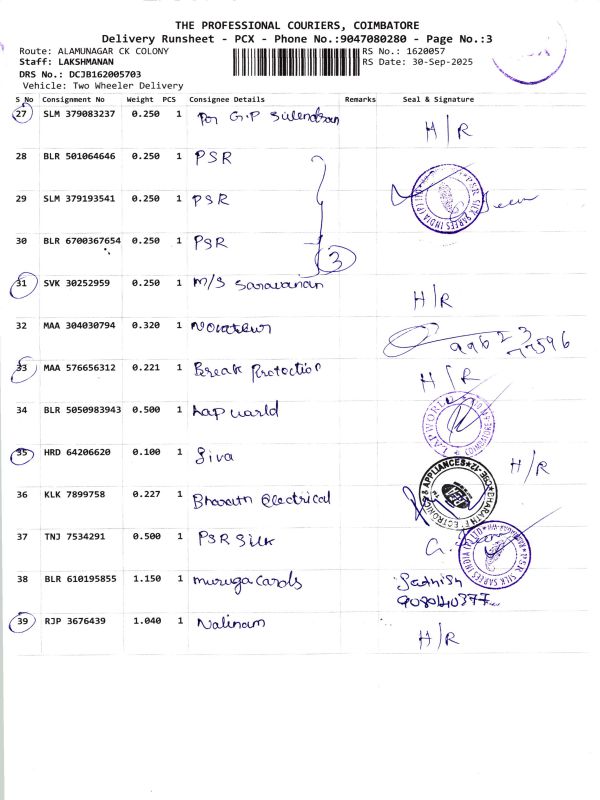 THE PROFESSIONAL COURIERS, COIMBATORE
Delivery Runsheet - PCX - Phone No.:9047080280 - Page No.:3
Route: ALAMUNAGAR CK COLONY
RS No.: 1620057
Staff: LAKSHMANAN
RS Date: 30-Sep-2025
DRS No.: DCJB162005703
Vehicle: Two Wheeler Delivery
S No Consignment No Weight PCS Consignee Details Remarks Seal & Signature
27 SLM 379083237 0.250 1 G.P H/R
28 BLR 501064646 0.250 1 PSR
29 SLM 379193541 0.250 1 PSR
30 BLR 6700367654 0.250 1 PSR 3
PSR SILK SAREES INDIA (P) LTD
31 SVK 30252959 0.250 1 M/S Saravanan H/R
32 MAA 304030794 0.320 1 Novateur 99623 77596
33 MAA 576656312 0.221 1 Break Protection H/R
34 BLR 5050983943 0.500 1 Lap world
LAPWORLD COIMBATORE
35 HRD 64206620 0.100 1 Siva H/R
36 KLK 7899758 0.227 1 Bharath Electrical
BHARATH ELECTRONICS & APPLIANCES CBE-12
37 TNJ 7534291 0.500 1 PSR Silk
PSR SILK SAREES INDIA (P) LTD
38 BLR 610195855 1.150 1 muruga Cards Sathish
39 RJP 3676439 1.040 1 Nalinam H/R